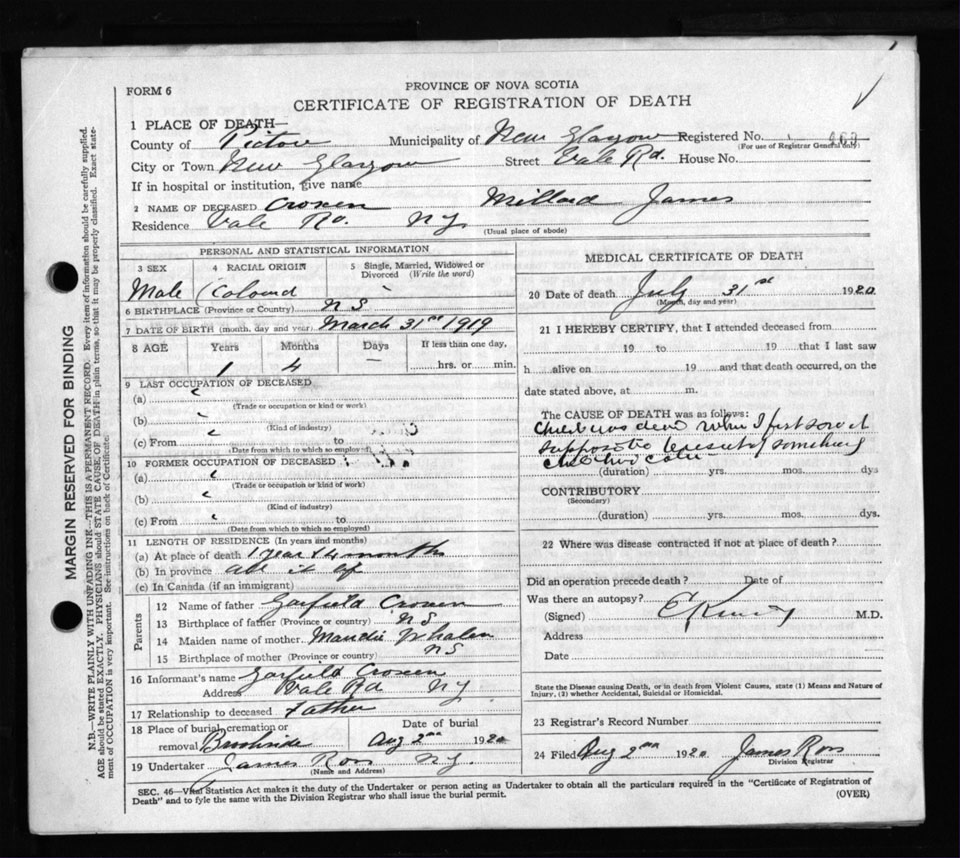 FORM 6
PROVINCE OF NOVA SCOTIA
CERTIFICATE OF REGISTRATION OF DEATH
1 PLACE OF DEATH—
County of Pictou Municipality of New Glasgow Registered No.
(For use of Registrar General only)
City or Town New Glasgow Street Vale Rd. House No.
If in hospital or institution, give name
2 NAME OF DECEASED Croxen Millard James
Residence Vale Rd. N G
(Usual place of abode)
PERSONAL AND STATISTICAL INFORMATION
3 SEX 4 RACIAL ORIGIN 5 Single, Married, Widowed or Divorced (Write the word)
Male Colourd
6 BIRTHPLACE (Province or Country) N S
7 DATE OF BIRTH (month, day and year) March 31st 1919
8 AGE Years Months Days If less than one day,
1 4 — hrs. or min.
9 LAST OCCUPATION OF DECEASED
(a)
(Trade or occupation or kind of work)
(b)
(Kind of industry)
(c) From to
(Date from which to which so employed)
10 FORMER OCCUPATION OF DECEASED
(a)
(Trade or occupation or kind of work)
(b)
(Kind of industry)
(c) From to
(Date from which to which so employed)
11 LENGTH OF RESIDENCE (In years and months)
(a) At place of death 1 year & 4 months
(b) In province all it
(c) In Canada (if an immigrant)
Parents
12 Name of father Garfield Croxen
13 Birthplace of father (Province or country) N S
14 Maiden name of mother Maudie Whalen
15 Birthplace of mother (Province or country) N S
16 Informant's name Garfield Croxen
Address Vale Rd N G
17 Relationship to deceased Father
18 Place of burial, cremation or removal Brookside
Date of burial Aug 2nd 1920
19 Undertaker James Ross N G.
(Name and Address)
MEDICAL CERTIFICATE OF DEATH
20 Date of death July 31st 1920
(Month, day and year)
21 I HEREBY CERTIFY, that I attended deceased from
19 to 19 that I last saw
h alive on 19 and that death occurred, on the
date stated above, at m.
The CAUSE OF DEATH was as follows:
Child was dead when I first saw it
supposed something
(duration) yrs. mos. dys
CONTRIBUTORY
(Secondary)
(duration) yrs. mos. dys.
22 Where was disease contracted if not at place of death?
Did an operation precede death? Date of
Was there an autopsy?
(Signed) M.D.
Address
Date
State the Disease causing Death, or in death from Violent Causes, state (1) Means and Nature of
Injury, (2) whether Accidental, Suicidal or Homicidal.
23 Registrar's Record Number
24 Filed Aug 2nd 1920 James Ross
Division Registrar
SEC. 46—Vital Statistics Act makes it the duty of the Undertaker or person acting as Undertaker to obtain all the particulars required in the "Certificate of Registration of
Death" and to fyle the same with the Division Registrar who shall issue the burial permit. (OVER)
MARGIN RESERVED FOR BINDING
N.B.—WRITE PLAINLY WITH UNFADING INK—THIS IS A PERMANENT RECORD. Every item of information should be carefully supplied.
AGE should be stated EXACTLY. PHYSICIANS should STATE CAUSE OF DEATH in plain terms, so that it may be properly classified. Exact state-
ment of OCCUPATION is very important. See instructions on back of Certificate.